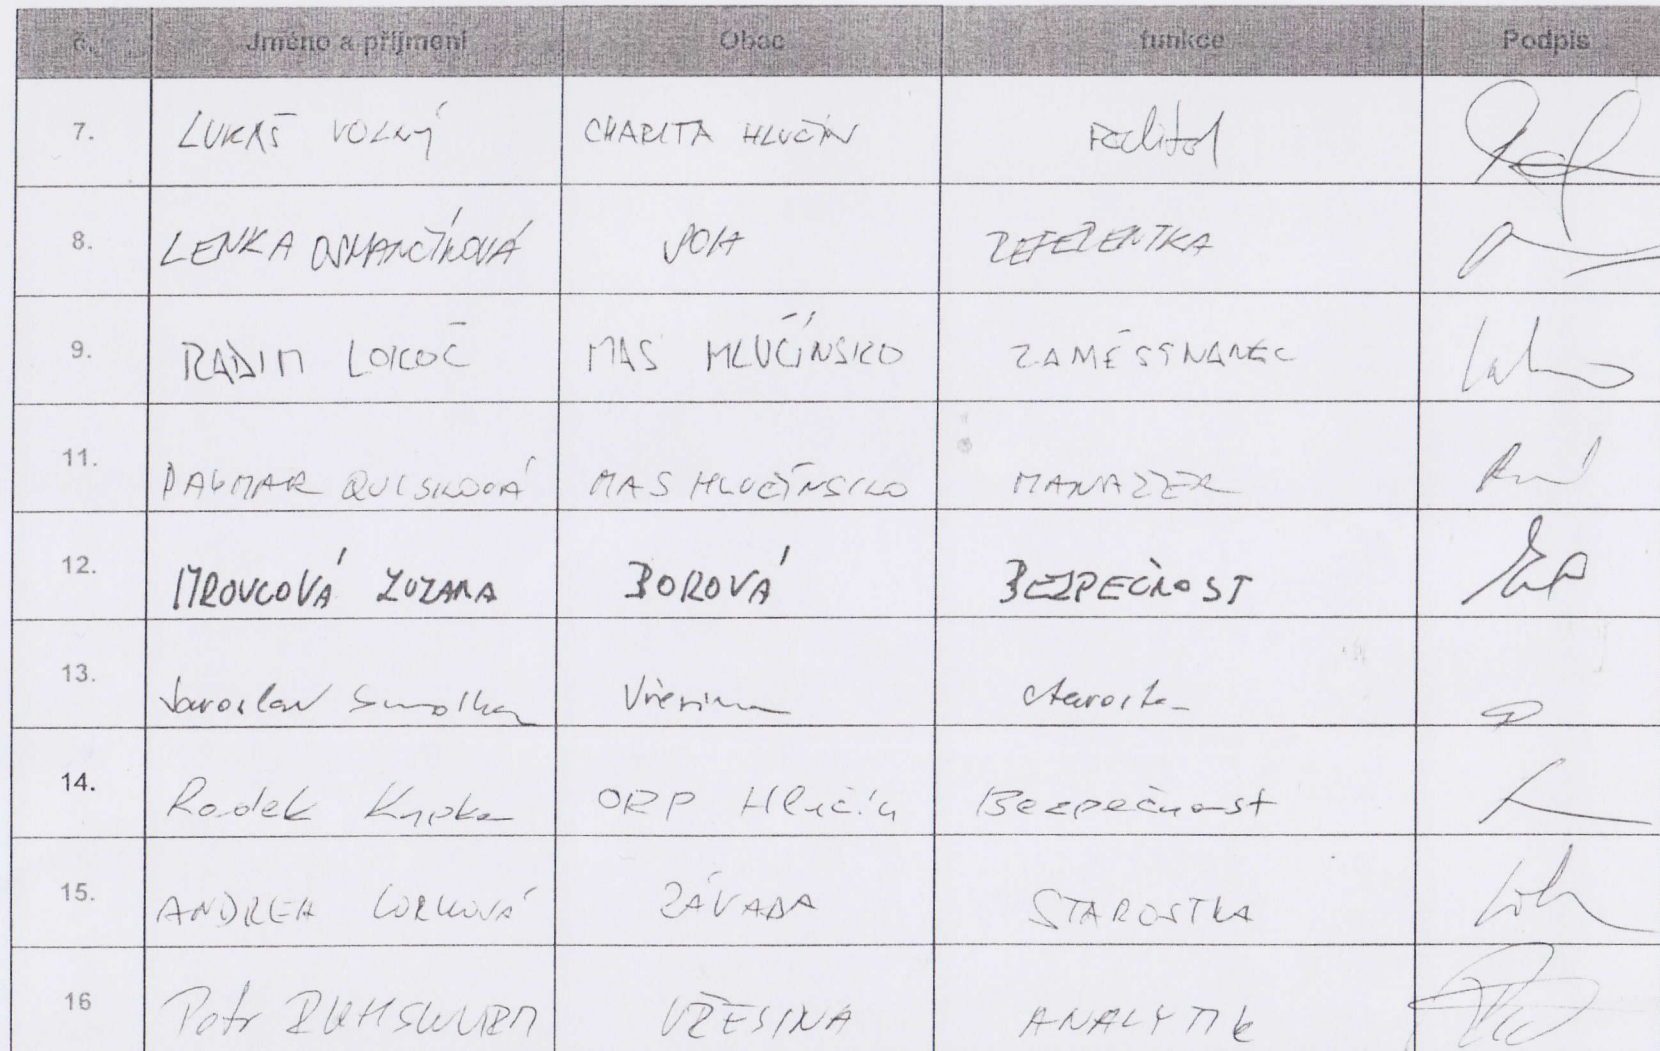 č. Jméno a příjmení Obec funkce Podpis
7. LUKÁŠ VOLNÝ CHARITA HLUČÍN ředitel
8. LENKA OSMANČÍKOVÁ REFERENTKA
9. RADIM LOKOČ MAS HLUČÍNSKO ZAMĚSTNANEC
11. DAGMAR QUISKOVÁ MAS HLUČÍNSKO MANAŽER
12. MROVCOVÁ ZUZANA BOROVÁ BEZPEČNOST
13. Jaroslav Smolka Vřesina starosta
14. Radek Krupka ORP Hlučín Bezpečnost
15. ANDREA ZÁVADA STAROSTKA
16 Petr VŘESINA ANALYTIK